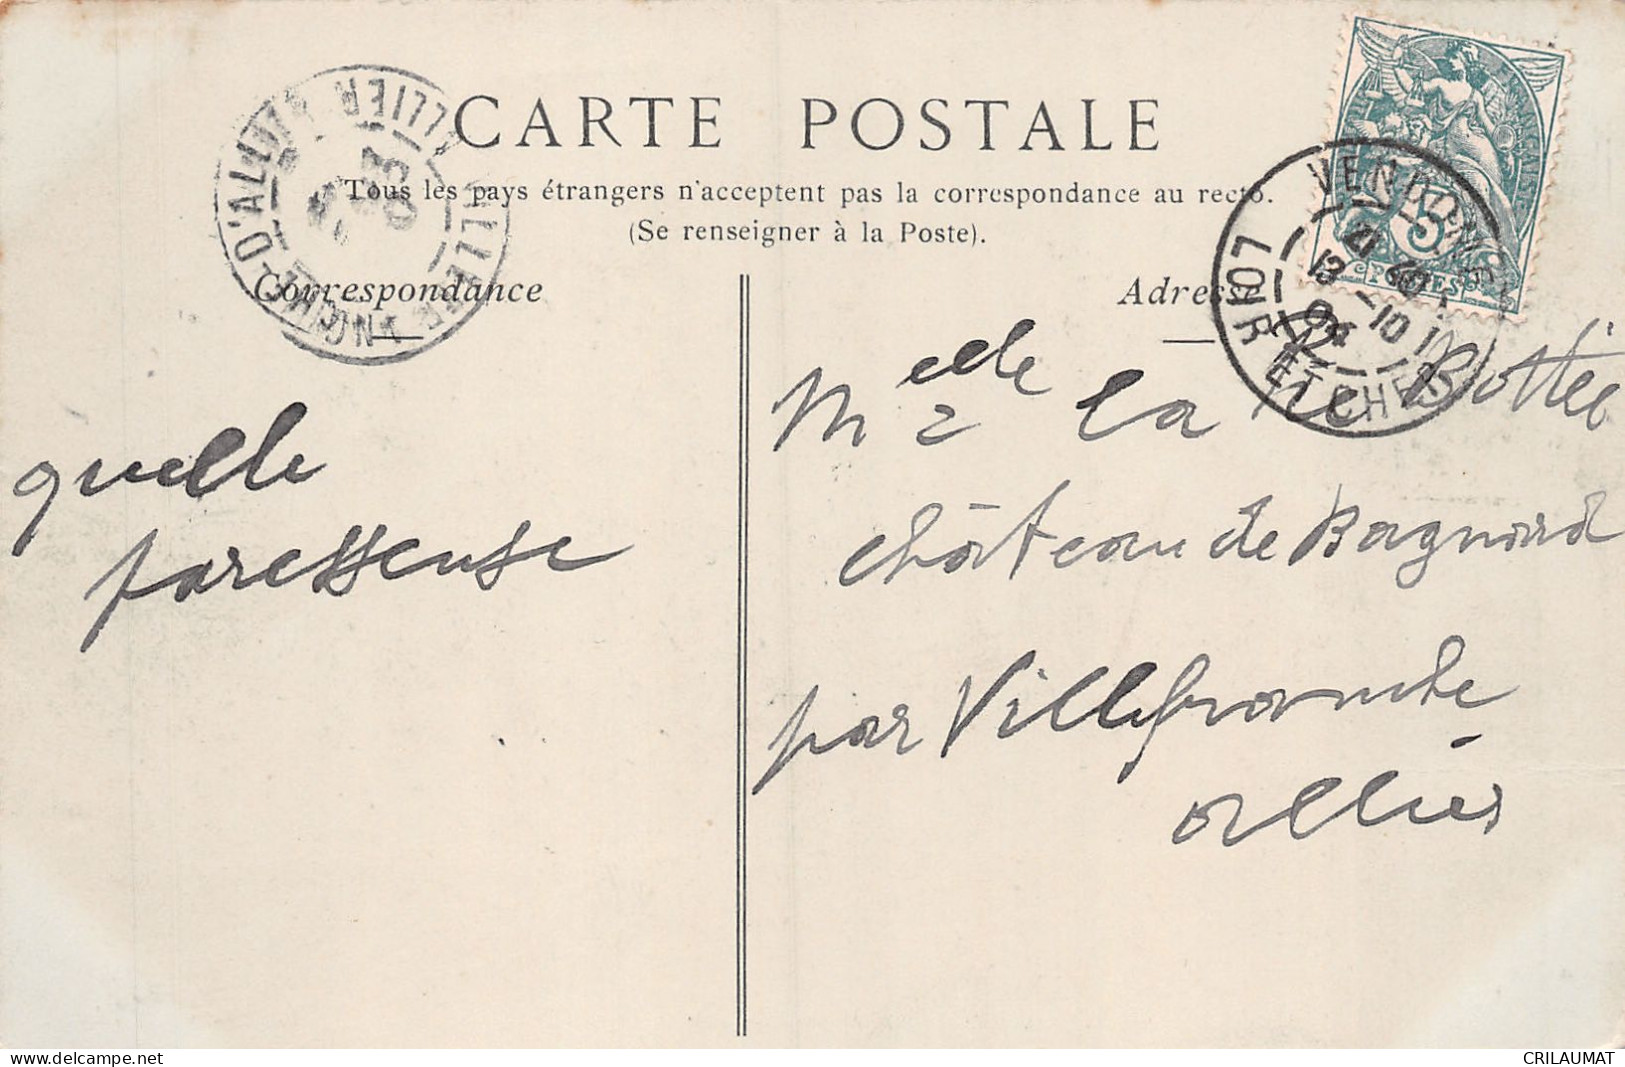 CARTE POSTALE
Tous les pays étrangers n'acceptent pas la correspondance au recto.
(Se renseigner à la Poste).
Correspondance
Adresse
VILLEFRANCHE-D'ALLIER ALLIER
VENDOME
LOIR ET CHER
13 -10
5
POSTES
quelle
paresseuse
Melle de la Bottée
château de Bagnard
par Villefranche
allier
delcampe.net
CRILAUMAT